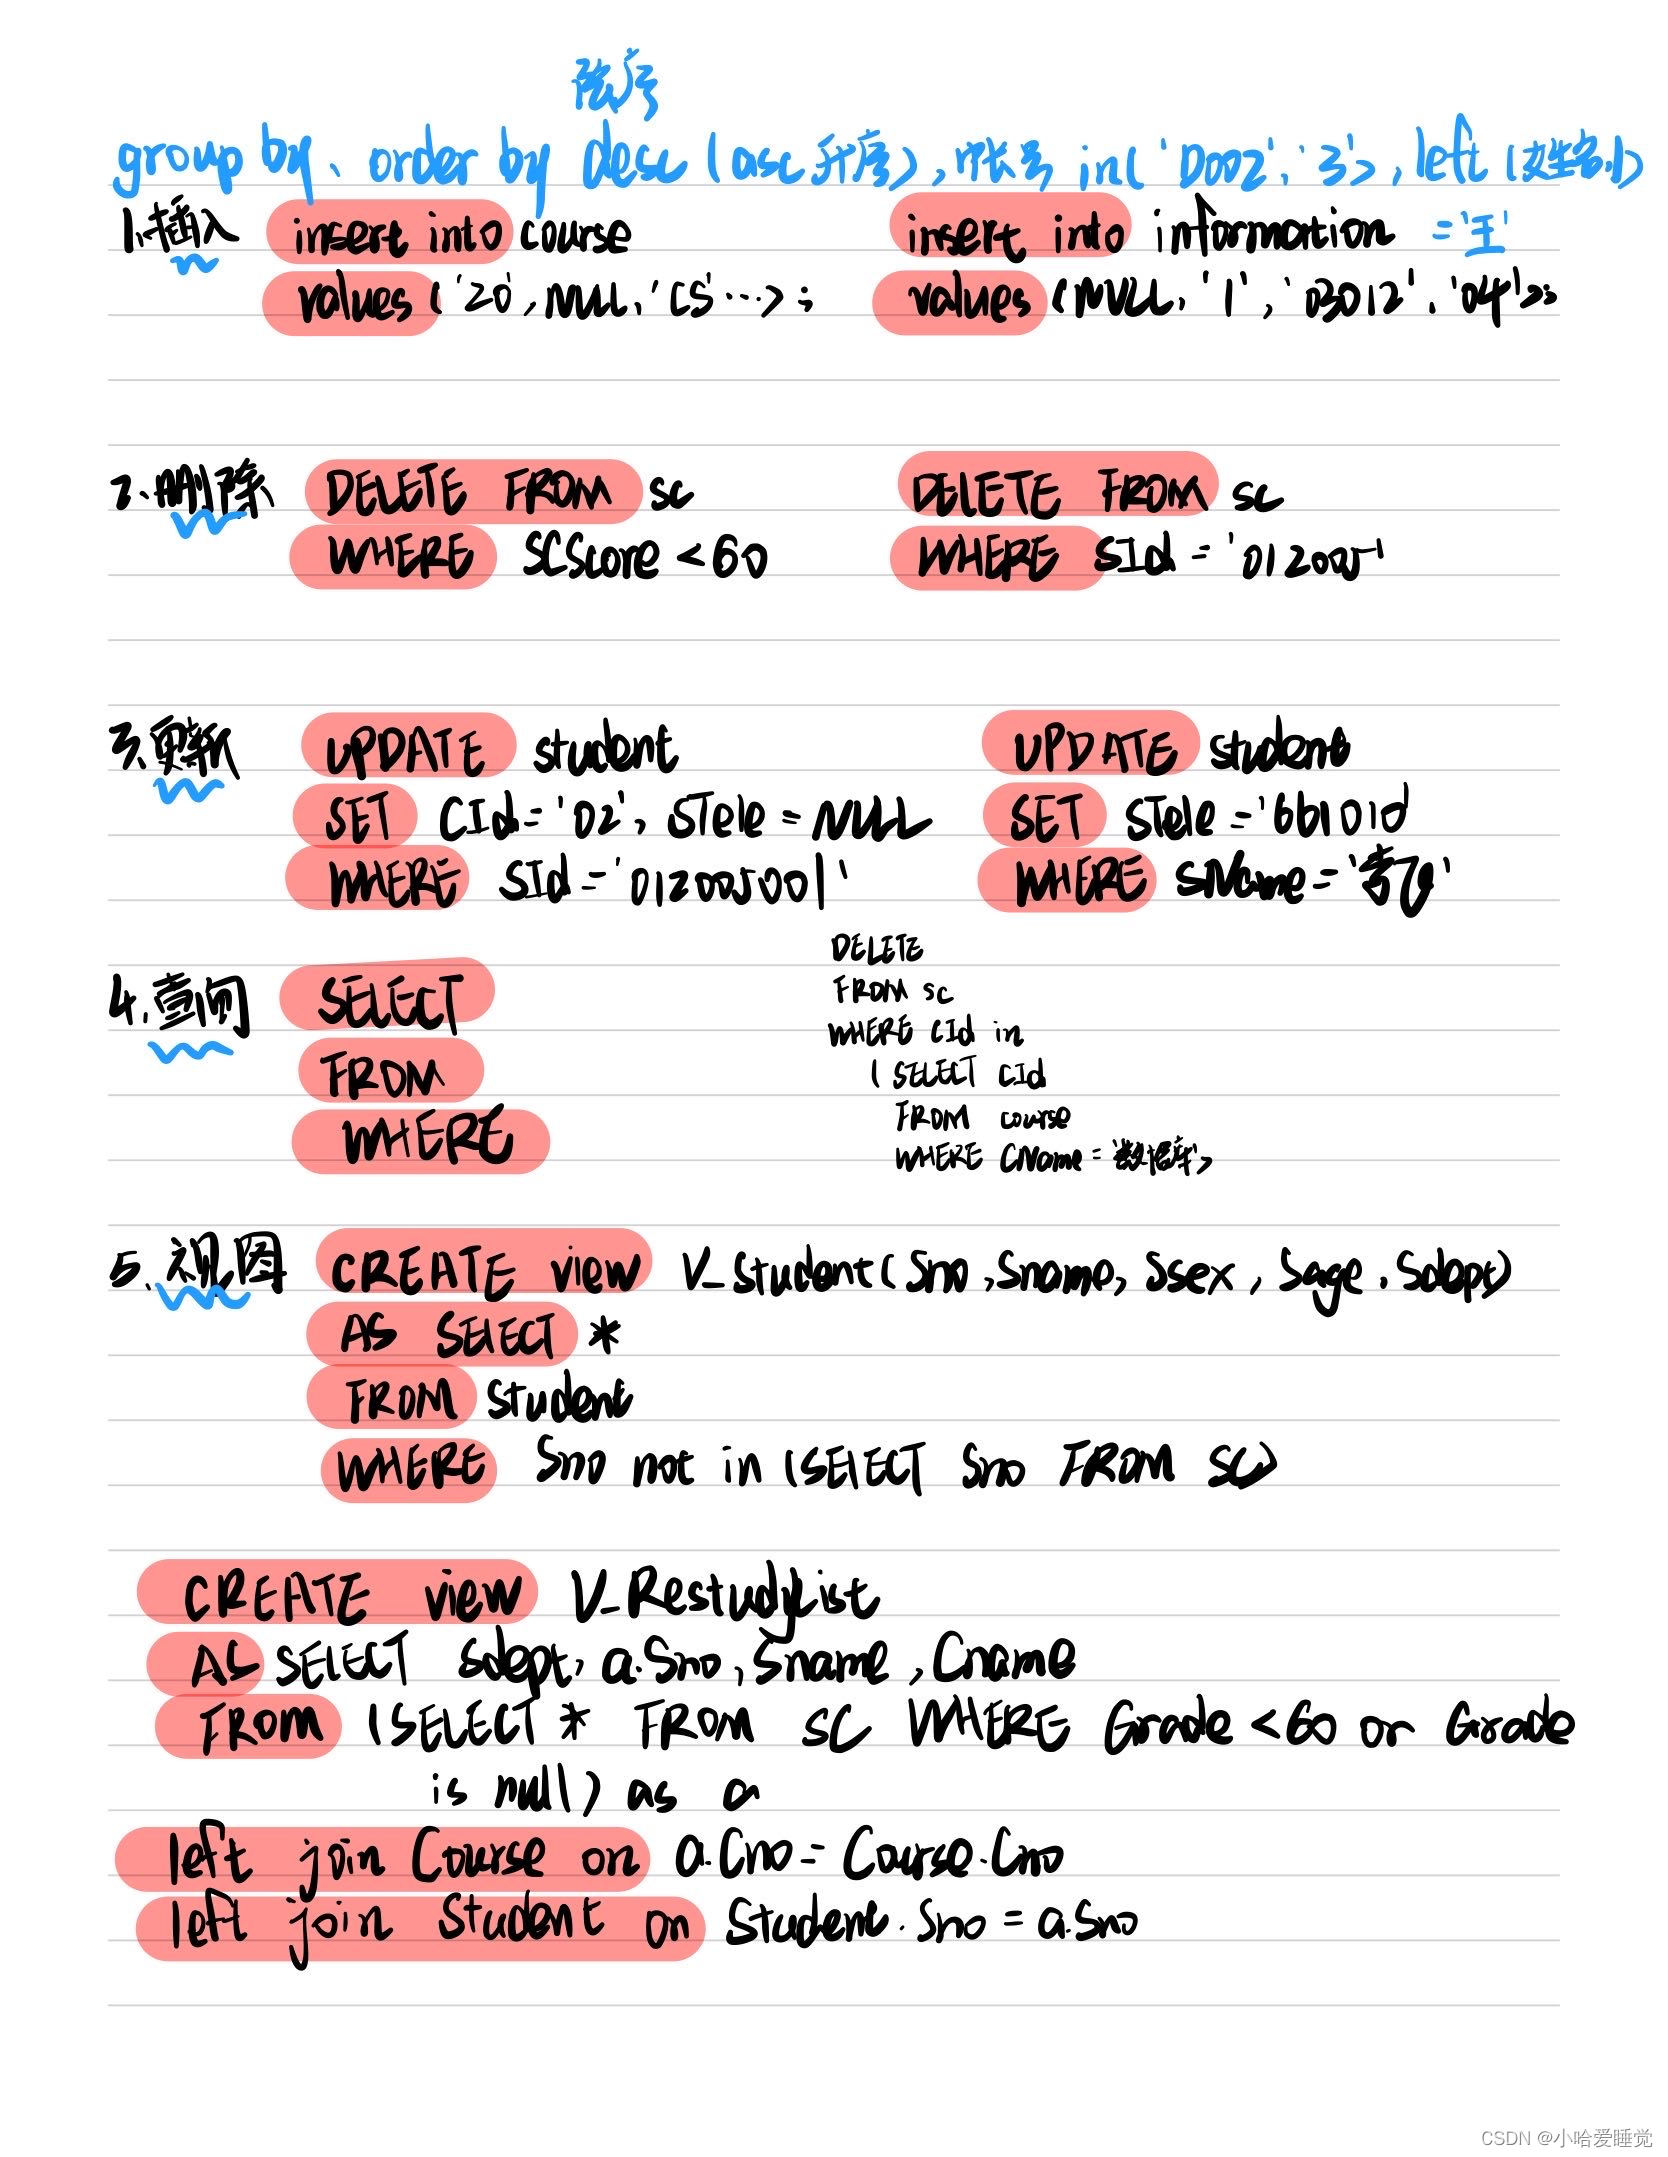 降序
group by、order by desc (asc 升序), 帐号 in('D002','3'), left (姓名,1)
='王'
1.插入 insert into course
values ('20',NULL,'CS'…);
insert into information
values (NULL,'1','03012','04');
2、删除 DELETE FROM sc
WHERE SCScore <60
DELETE FROM sc
WHERE SId = '012005'
3.更新 UPDATE student
SET CId='02', STele = NULL
WHERE SId='012005001'
UPDATE student
SET STele ='661010'
WHERE SName='李乙'
4.查询 SELECT
FROM
WHERE
DELETE
FROM sc
WHERE CId in
(SELECT CId
FROM course
WHERE CName='数据库')
5.视图 CREATE view V_Student(Sno,Sname,Ssex,Sage,Sdept)
AS SELECT *
FROM student
WHERE Sno not in (SELECT Sno FROM SC)
CREATE view V_RestudyList
AS SELECT Sdept, a.Sno, Sname, Cname
FROM (SELECT * FROM SC WHERE Grade <60 or Grade
is null) as a
left join Course on a.Cno= Course.Cno
left join Student on Student.Sno = a.Sno
CSDN @小哈爱睡觉